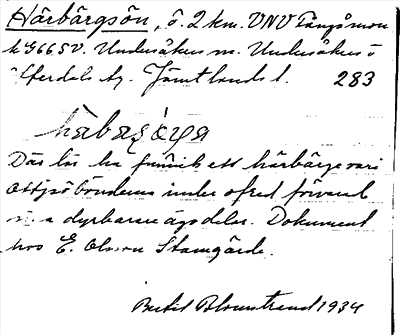 Härbärgsön, ö. 2 km. VNV Tångåmon
k 9665V. Undersåkers sn. Undersåkers o
Offerdals tg. Jämtlands l. 283
häbasøya
Där lär ha funnits ett härbärge vari
Ottsjöbönderna under ofred förvarat
sina dyrbarare ägodelar. Dokument
hos E. Olsson Stamgärde.
Bertil Blomstrand 1934